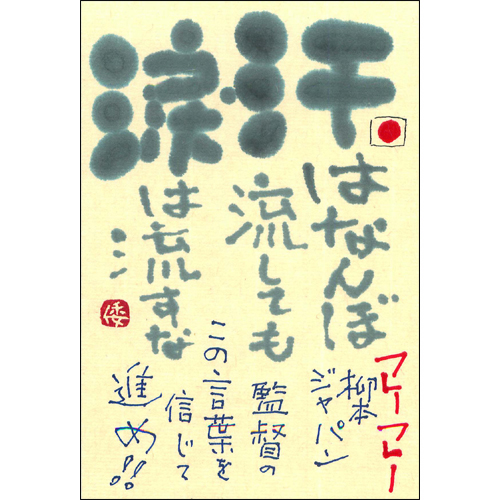 汗はなんぼ
流しても
涙は流すな
倭
フレーフレー
柳本
ジャパン
監督の
この言葉を
信じて
進め!!